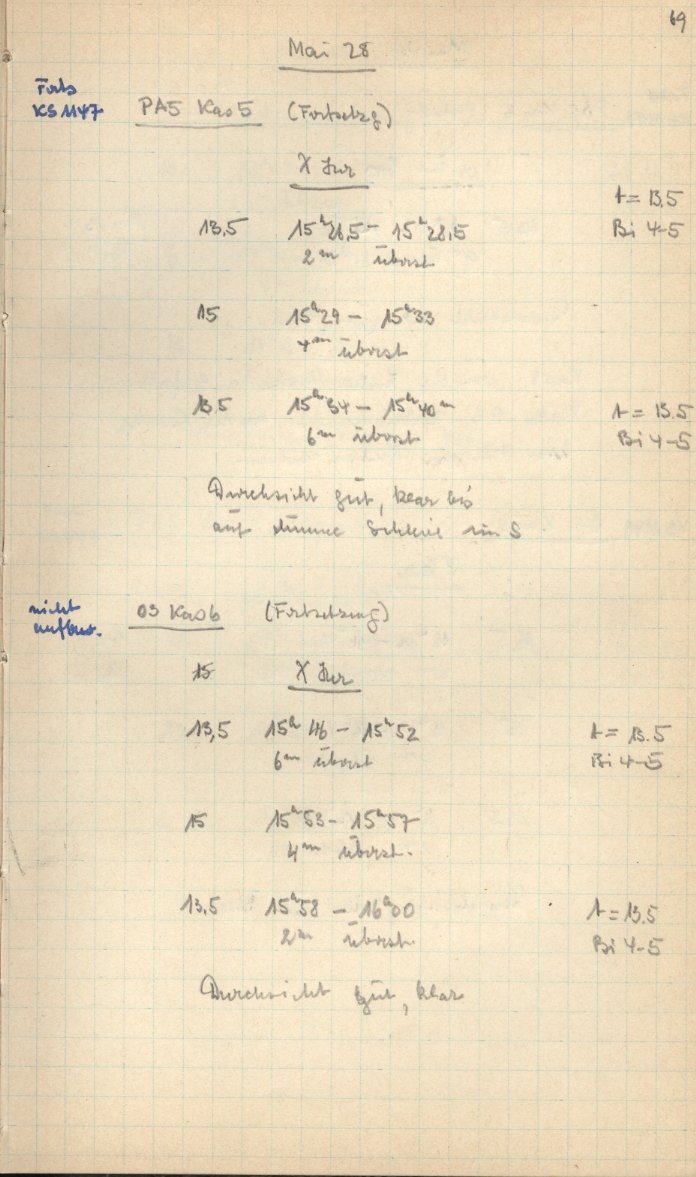 69
Mai 28
Forts
KS 1147 PA5 Kas 5 (Fortsetzg)
X Jur
t = 13.5
13,5 15h26,5 – 15h28,5 Bi 4-5
2m überst
15 15h29 – 15h33
4m überst
13,5 15h34 – 15h40m t = 13.5
6m überst Bi 4-5
Durchsicht gut, klar bis
auf dünne im S
nicht
aufbew. 03 Kas 6 (Fortsetzung)
15 X Jur
13,5 15h46 – 15h52 t = 13.5
6m überst Bi 4-5
15 15h53 – 15h57
4m überst.
13,5 15h58 – 16h00 t = 13.5
2m überst. Bi 4-5
Durchsicht gut, klar